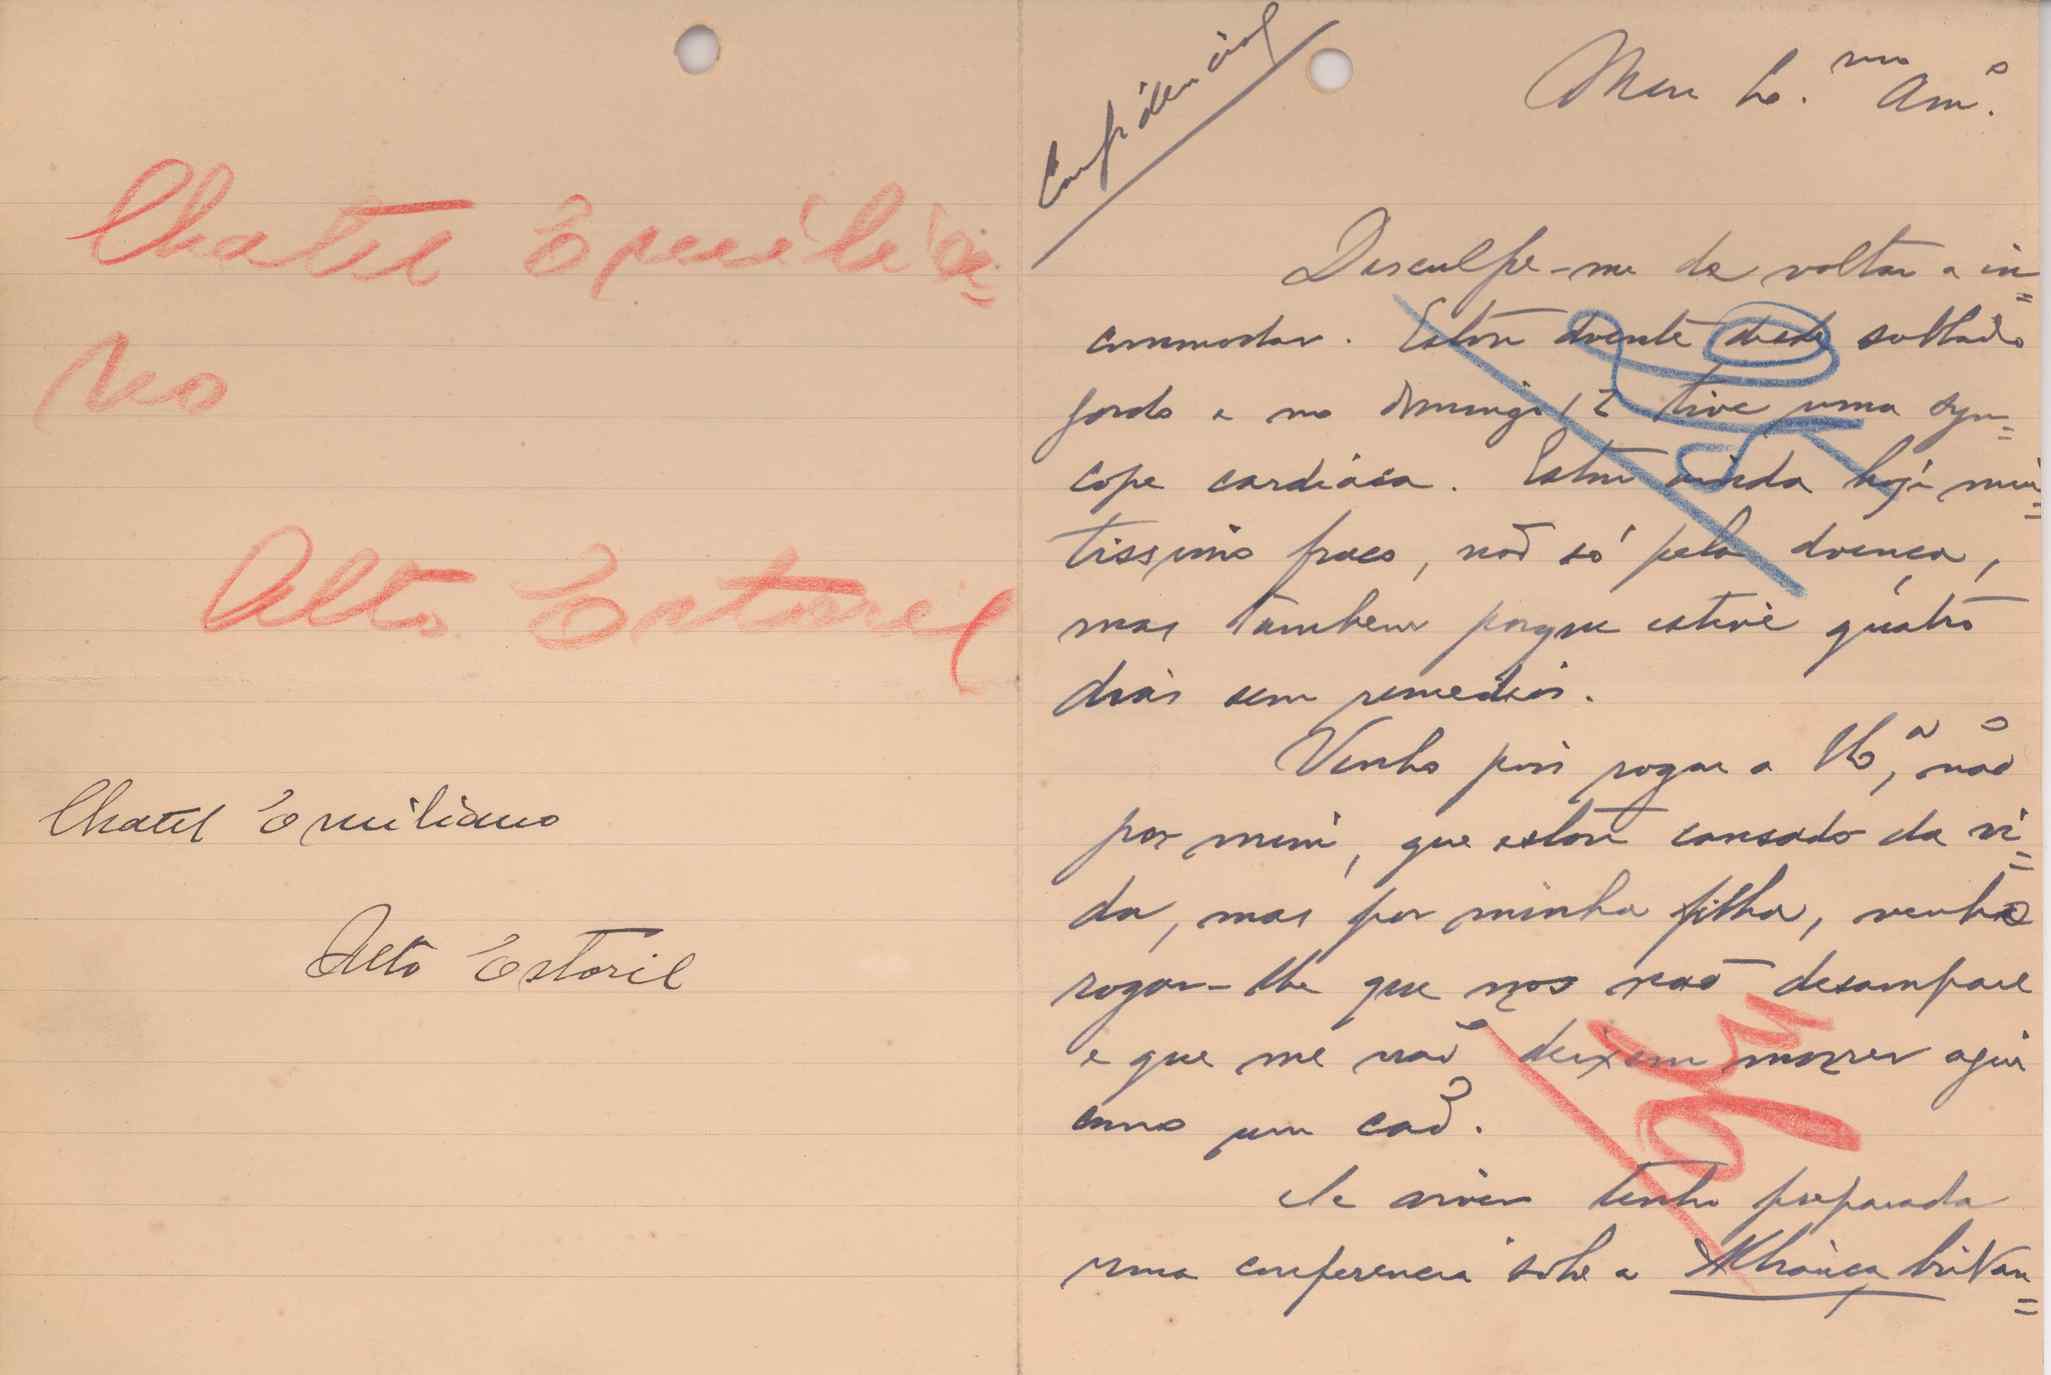 Chatel Emilia=
no
Alto Estoril
Chatel Emiliano
Alto Estoril
Confidencial
Meu Am.º
Desculpe-me de voltar a in=
commodar. Estou doente desde sabbado
gordo e no domingo 12 tive uma syn=
cope cardiaca. Estou ainda hoje mui=
tissimo fraco, não só pela doença,
mas tambem porque estive quatro
dias sem remedios.
Venho pois rogar a não
por mim, que estou cansado da vi=
da, mas por minha filha, venho
rogar-lhe que nos não desampare
e que me não deixem morrer aqui
como um cão.
Se viver tenho preparada
uma conferencia sobre a Alliança britan=